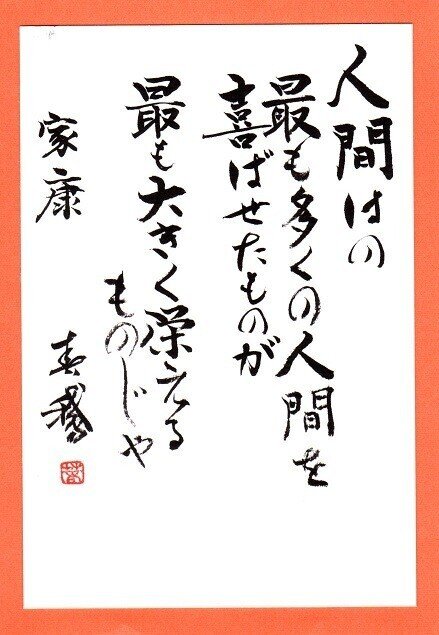 人間はの
最も多くの人間を
喜ばせたものが
最も大きく栄える
ものじゃ
家康